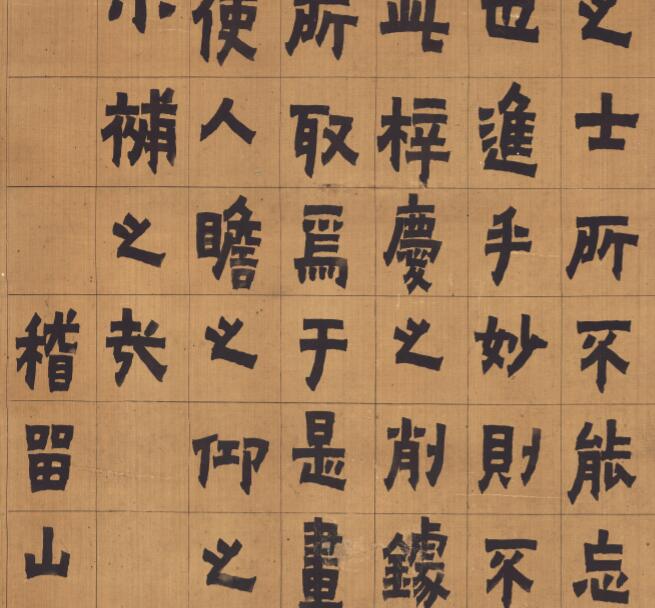 之士所不能忘
也進乎妙則不
此梓慶之削鐻
所取焉于是畫
使人瞻之仰之
小補之哉
稽留山